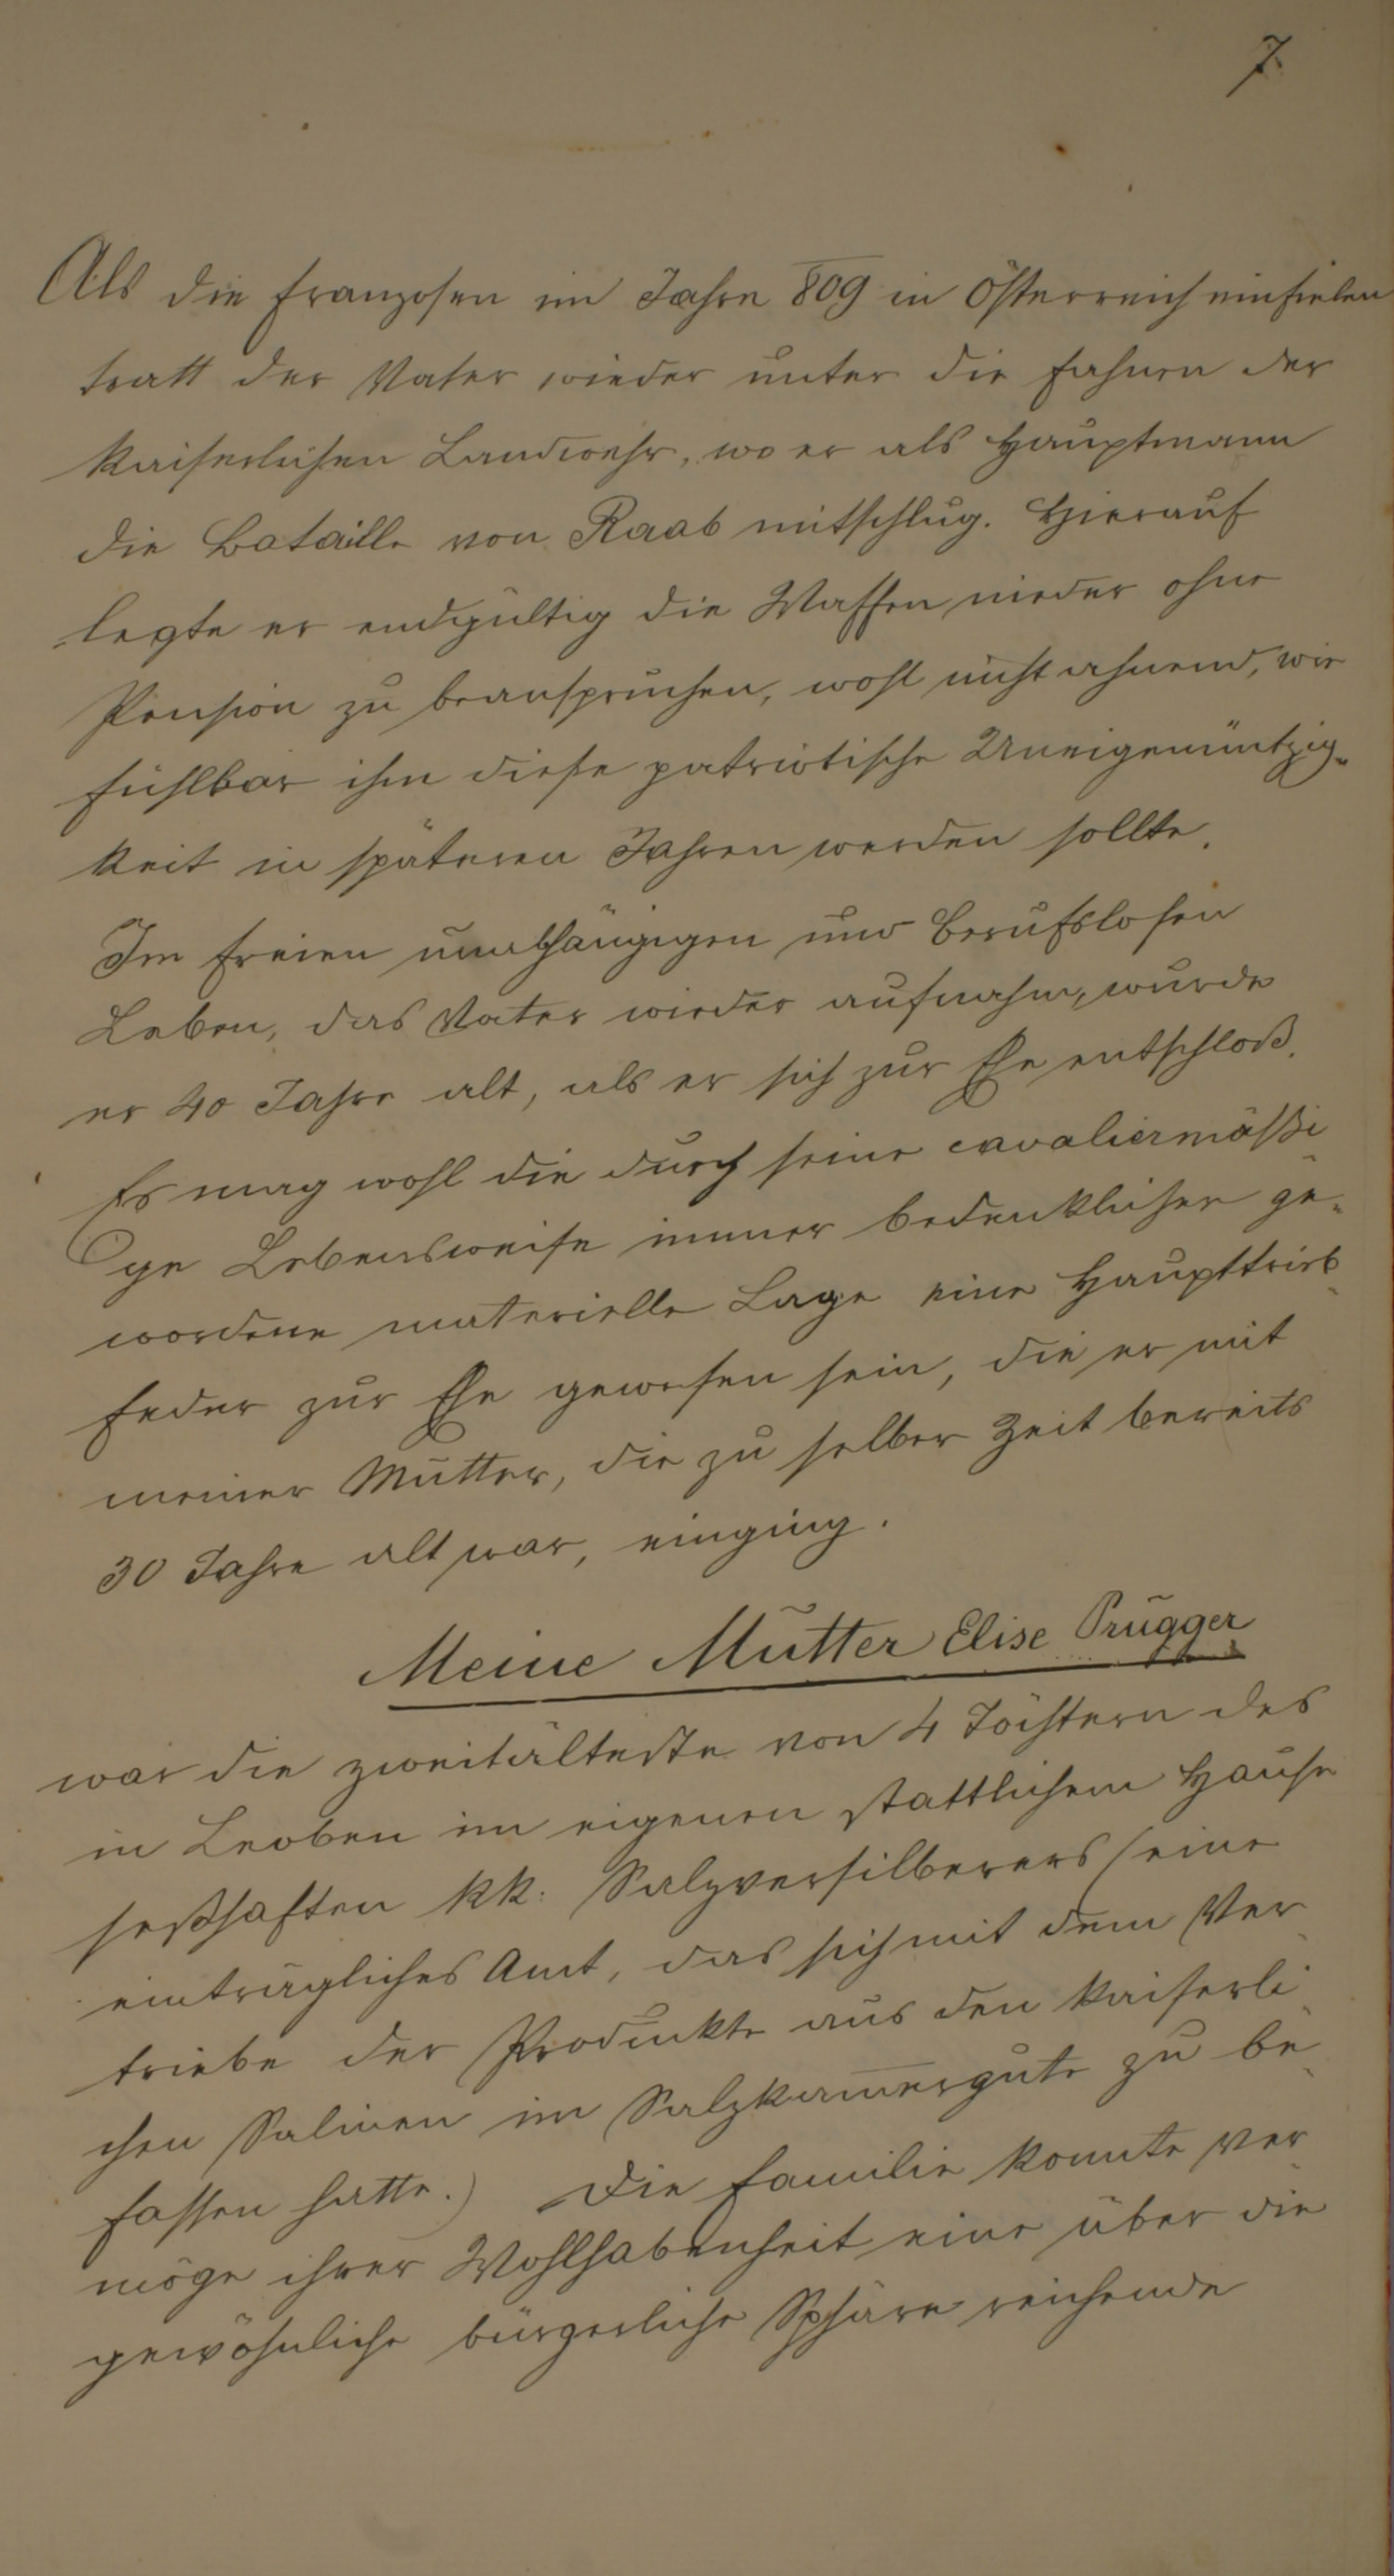 7.
Als die Franzosen im Jahre 809 in Österreich einfielen
tratt der Vater wieder unter die Fahnen der
kaiserlichen Landwehr, wo er als Hauptmann
die Bataille von Raab mitschlug. Hierauf
legte er endgültig die Waffen nieder ohne
Pension zu beanspruchen, wohl nicht ahnend, wie
fühlbar ihm diese patriotische Uneigennützig-
keit in späteren Jahren werden sollte.
Im freien unabhängigen und berufslosen
Leben, das Vater wieder aufnahm, wurde
er 40 Jahre alt, als er sich zur Ehe entschloß.
Es mag wohl die durch seine cavaliermäßi-
ge Lebensweise immer bedenklicher ge-
wordene materielle Lage eine Haupttrieb-
feder zur Ehe gewesen sein, die er mit
meiner Mutter, die zu selber Zeit bereits
30 Jahre alt war, einging.
Meine Mutter Elise Prugger
war die zweitälteste von 4 Töchtern des
in Leoben im eigenen stattlichem Hause
seßhaften kk: Salzversilberers (eine
einträgliches Amt, das sich mit dem Ver-
triebe der Produkte aus den kaiserli-
chen Salinen im Salzkam̅ergute zu be-
fassen hatte.) Die Familie konnte ver-
möge ihrer Wohlhabenheit eine über die
gewöhnliche bürgerliche Sphäre reichende